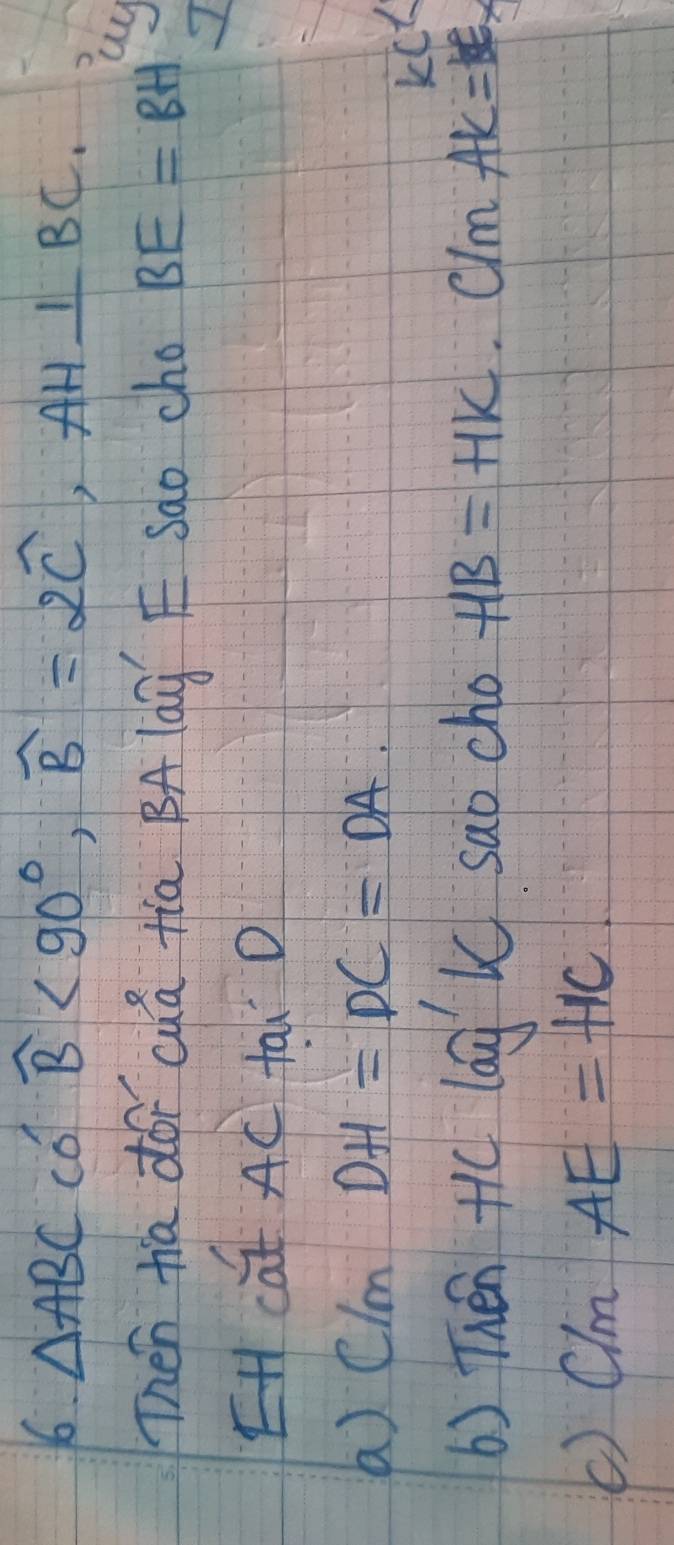 6. ΔABC có B̂ < 90°, B̂ = 2Ĉ, AH ⊥ BC.
Trên tia đối của tia BA lấy E sao cho BE = BH
EH cắt AC tại D
a) C/m DH = DC = DA.
KC
b) Trên HC lấy K sao cho HB = HK. C/m AK =
c) C/m AE = HC.